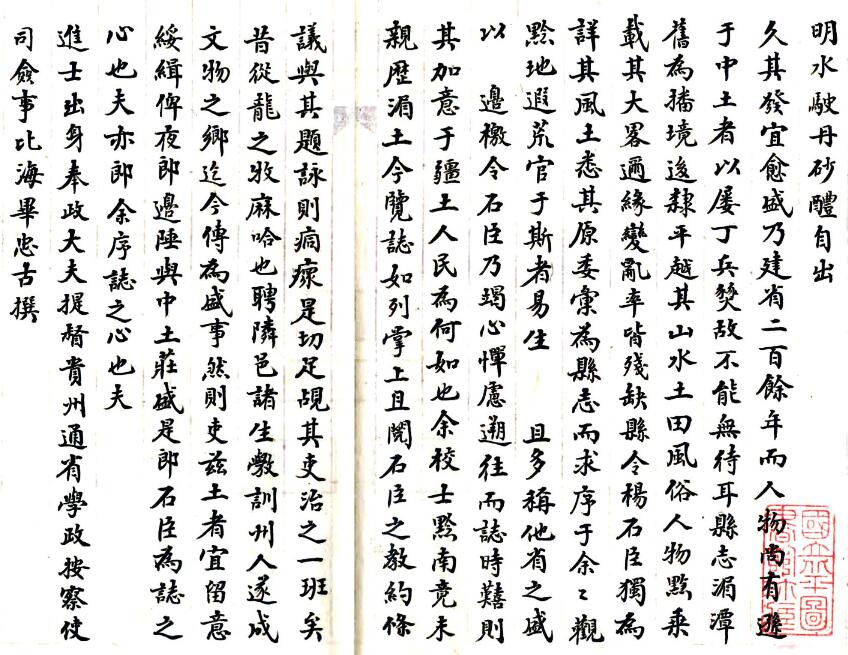 明水駛丹砂醴自出
久其發宜愈盛乃建省二百餘年而人物尚有遜
于中土者以屡丁兵燹故不能無待耳縣志湄潭
舊為播境後隸平越其山水土田風俗人物黔乗
載其大畧邇緣變亂率皆殘缺縣令楊石臣獨為
詳其風土悉其原委彙為縣志而求序于余〻觀
黔地遐荒官于斯者易生 且多稱他省之盛
以 邊檄令石臣乃竭心憚慮遡往而誌時囏則
其加意于疆土人民為何如也余校士黔南竟未
親歷湄土今覽誌如列掌上且閱石臣之教約條
議與其題詠則痌瘝是切足覘其吏治之一班矣
昔從龍之牧麻哈也聘隣邑諸生斆訓州人遂成
文物之鄉迄今傳為盛事然則吏兹土者宜留意
綏緝俾夜郎邊陲與中土莊盛是郎石臣為誌之
心也夫亦郎余序誌之心也夫
進士出身奉政大夫提督貴州通省學政按察使
司僉事北海畢忠吉撰
國立北平圖
書館收藏